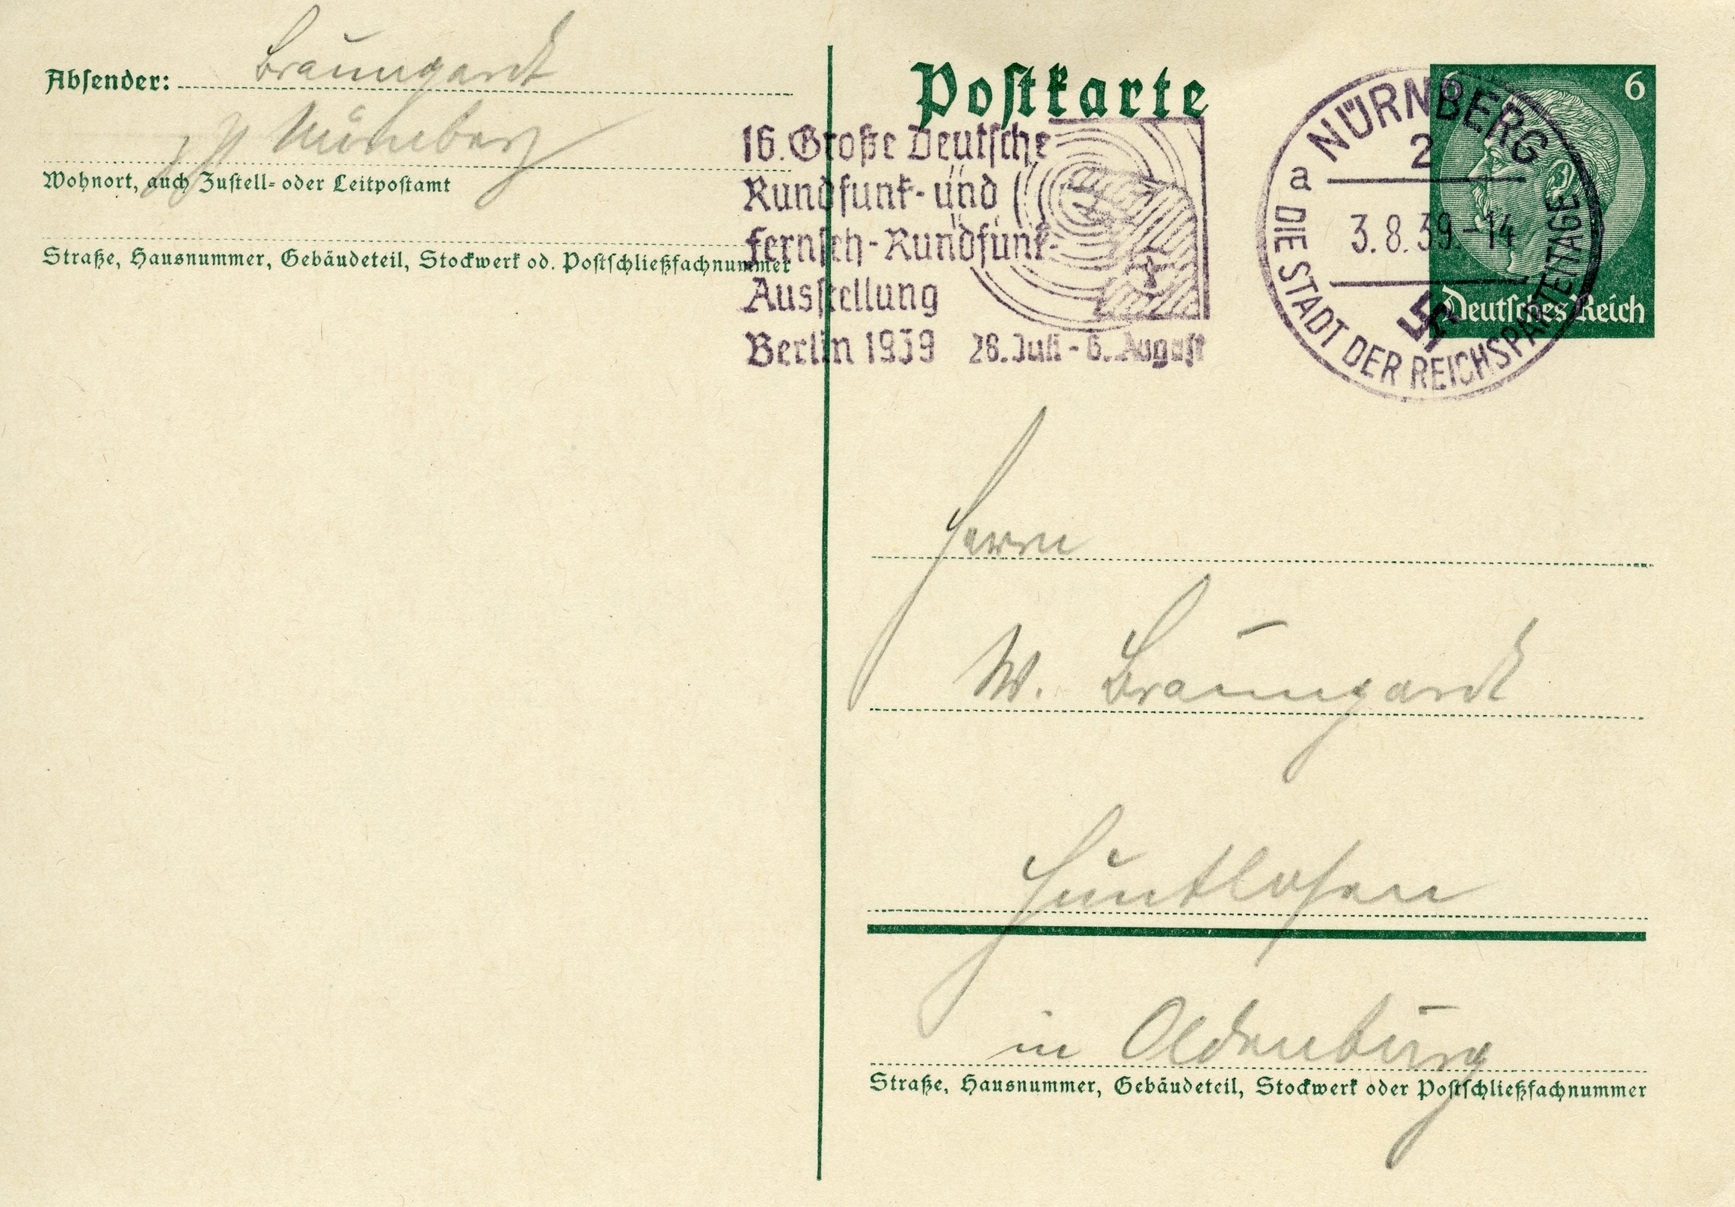 Absender: Braungardt
zZ Nürnberg
Wohnort, auch Zustell- oder Leitpostamt
Straße, Hausnummer, Gebäudeteil, Stockwerk od. Postschließfachnummer
Postkarte
16. Große Deutsche
Rundfunk- und
Fernseh-Rundfunk-
Ausstellung
Berlin 1939 28. Juli - 6. August
NÜRNBERG
2
a
3.8.39.-14
DIE STADT DER REICHSPARTEITAGE
6 6
Deutsches Reich
Herrn
W. Braungardt
Huntlosen
in Oldenburg
Straße, Hausnummer, Gebäudeteil, Stockwerk oder Postschließfachnummer